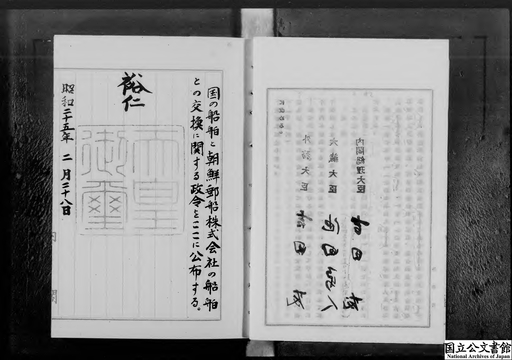 国の船舶と朝鮮郵船株式会社の船舶
との交換に関する政令をここに公布する。
裕仁
天皇
御璽
昭和二十五年 二月二十八日
内閣総理大臣 吉田 茂
大蔵大臣 池田勇人
外務大臣 吉田 茂
国立公文書館
National Archives of Japan